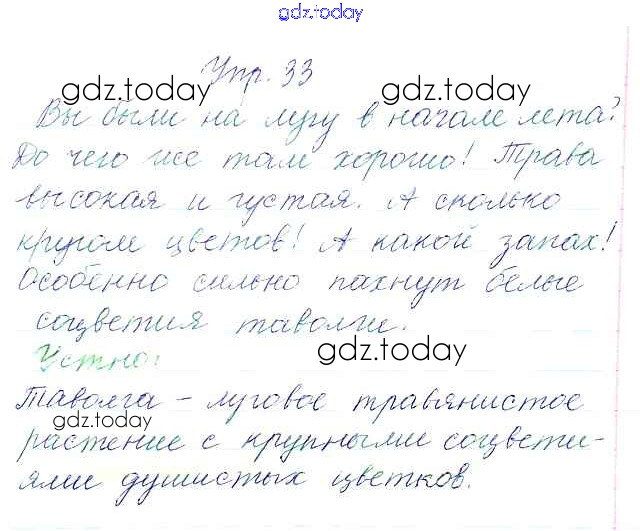 gdz.today
Упр. 33
gdz.today gdz.today
Вы были на лугу в начале лета?
До чего же там хорошо! Трава
высокая и густая. А сколько
кругом цветов! А какой запах!
Особенно сильно пахнут белые
соцветия таволги.
Устно:
gdz.today
Таволга – луговое травянистое
gdz.today
растение с крупными соцвети-
ями душистых цветков.